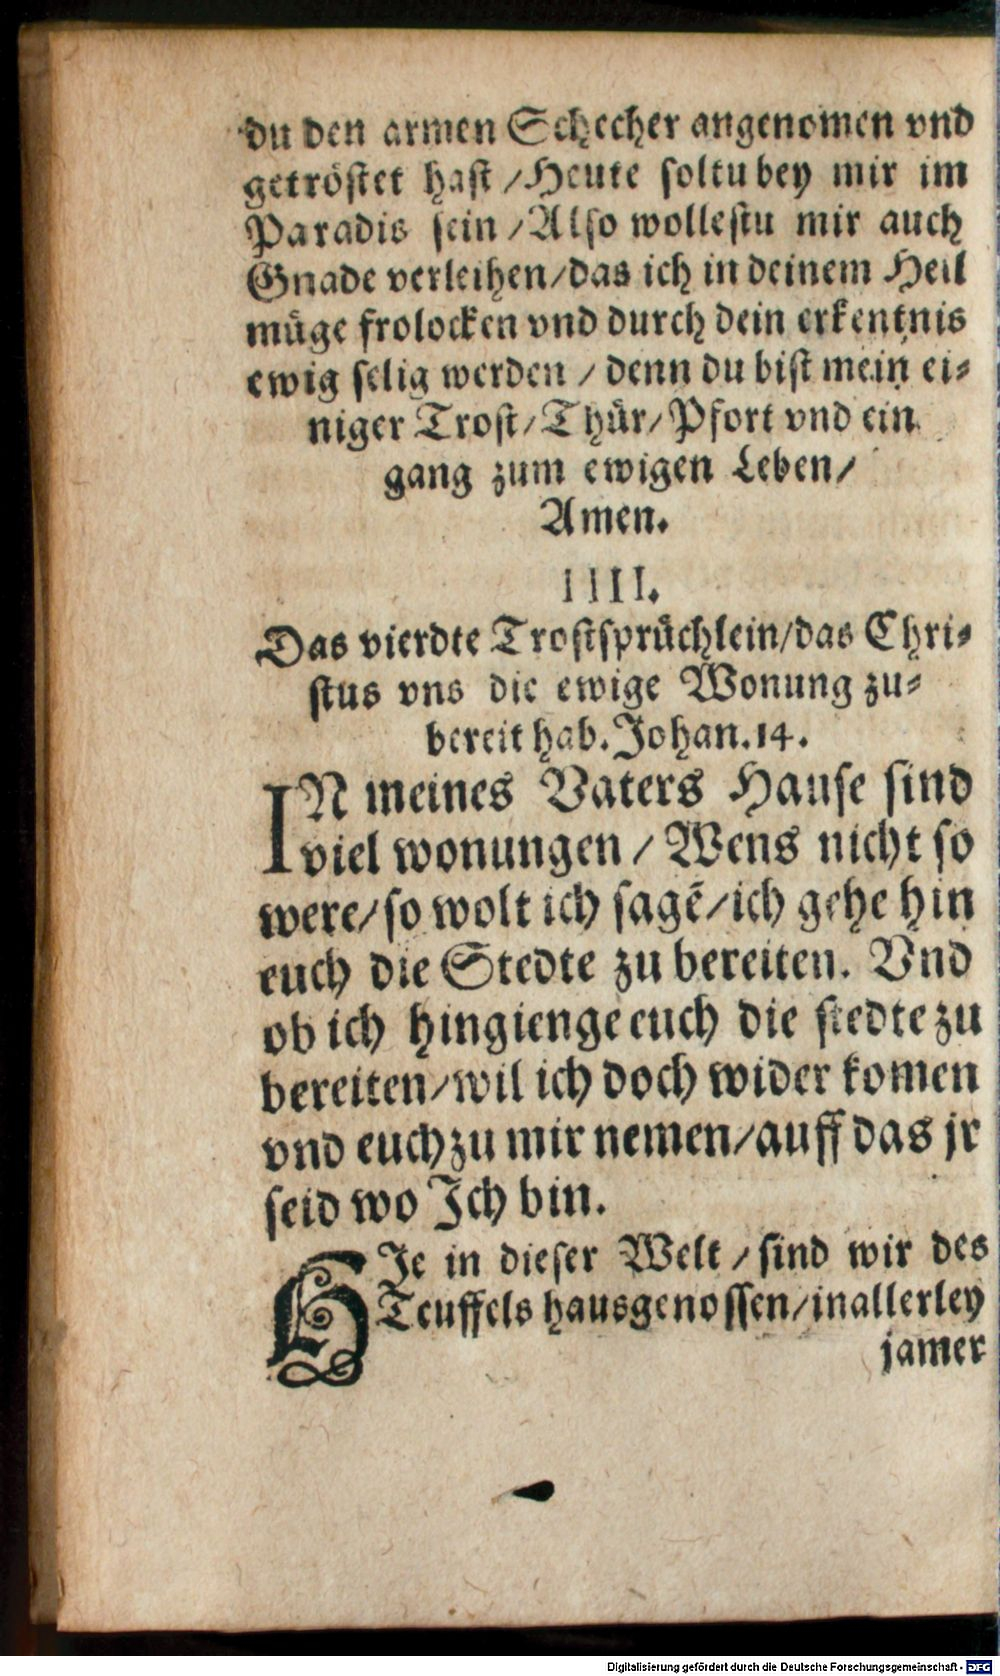 du den armen Schecher angenomen vnd
getröstet hast / Heute soltu bey mir im
Paradis sein / Also wollestu mir auch
Gnade verleihen / das ich in deinem Heil
müge frolocken vnd durch dein erkentnis
ewig selig werden / denn du bist mein ei-
niger Trost / Thür / Pfort vnd ein
gang zum ewigen Leben /
Amen.
IIII.
Das vierdte Trostsprüchlein / das Chri-
stus vns die ewige Wonung zu-
bereit hab. Johan. 14.
IN meines Vaters Hause sind
viel wonungen / Wens nicht so
were / so wolt ich sagē / ich gehe hin
euch die Stedte zu bereiten. Vnd
ob ich hingienge euch die stedte zu
bereiten / wil ich doch wider komen
vnd euch zu mir nemen / auff das jr
seid wo Ich bin.
HIe in dieser Welt / sind wir des
Teuffels hausgenossen / in allerley
jamer
Digitalisierung gefördert durch die Deutsche Forschungsgemeinschaft - DFG